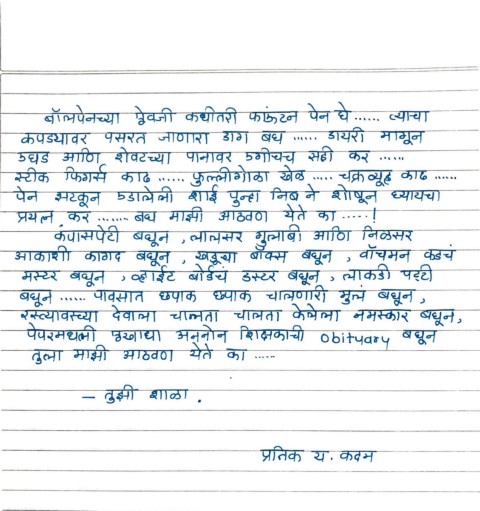 बॉलपेनच्या ऐवजी कधीतरी फाऊंटन पेन घे ...... त्याचा
कपड्यावर पसरत जाणारा डाग बघ ...... डायरी मागून
उघड आणि शेवटच्या पानावर उगीचच सही कर ......
स्टीक फिगर्स काढ ...... फुल्लीगोळा खेळ ..... चक्रव्यूह काढ ......
पेन झटकून उडालेली शाई पुन्हा निब ने शोषून घ्यायचा
प्रयत्न कर ....... बघ माझी आठवण येते का .....!
कंपासपेटी बघून , लालसर गुलाबी आणि निळसर
आकाशी कागद बघून , खडूचा बॉक्स बघून , वॉचमन कडचं
मस्टर बघून , व्हाईट बोर्डचं डस्टर बघून , लाकडी पट्टी
बघून ...... पावसात छपाक छपाक चालणारी मुलं बघून ,
रस्त्यावरच्या देवाला चालता चालता केलेला नमस्कार बघून,
पेपरमधली एखाद्या अननोन शिक्षकाची obituary बघून
तुला माझी आठवण येते का .....
- तुझी शाळा .
प्रतिक य. कदम